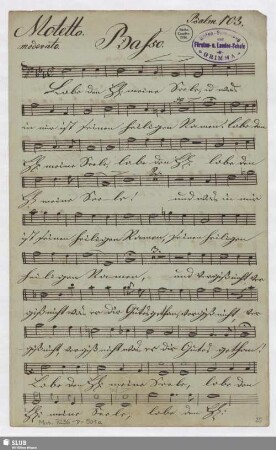 Motetto.
Psalm 103.
moderato.
Basso.
Fürsten- u. Landes-Schule
GRIMMA
Lobe den HE: meine Seele, u. was
in mir ist seinen heiligen Namen! lobe den
HE: meine Seele, lobe den HE: lobe den
HE: meine Seele! und was in mir
ist seinen heiligen Namen, seinen heiligen
heiligen Namen, und vergiß nicht ver-
giß nicht was er dir Gutes gethan, vergiß nicht, ver-
giß nicht vergiß nicht was er dir Gutes gethan!
Lobe den HE: meine Seele, lobe den
HE: meine Seele, lobe den HE:
SLUB